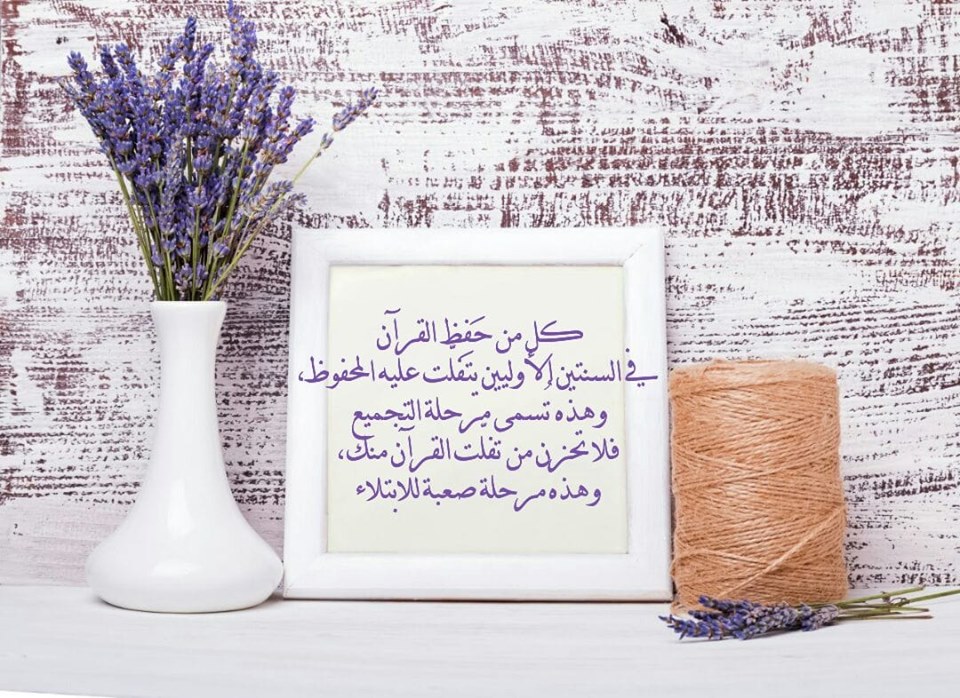 كل من حَفظِ القرآن
في السنتين الأوليين يتَفلت عليه المحفوظ،
وهذه تسمى مرحلة التجميع
فلا تحزن من تفلت القرآن منك،
وهذه مرحلة صعبة للابتلاء